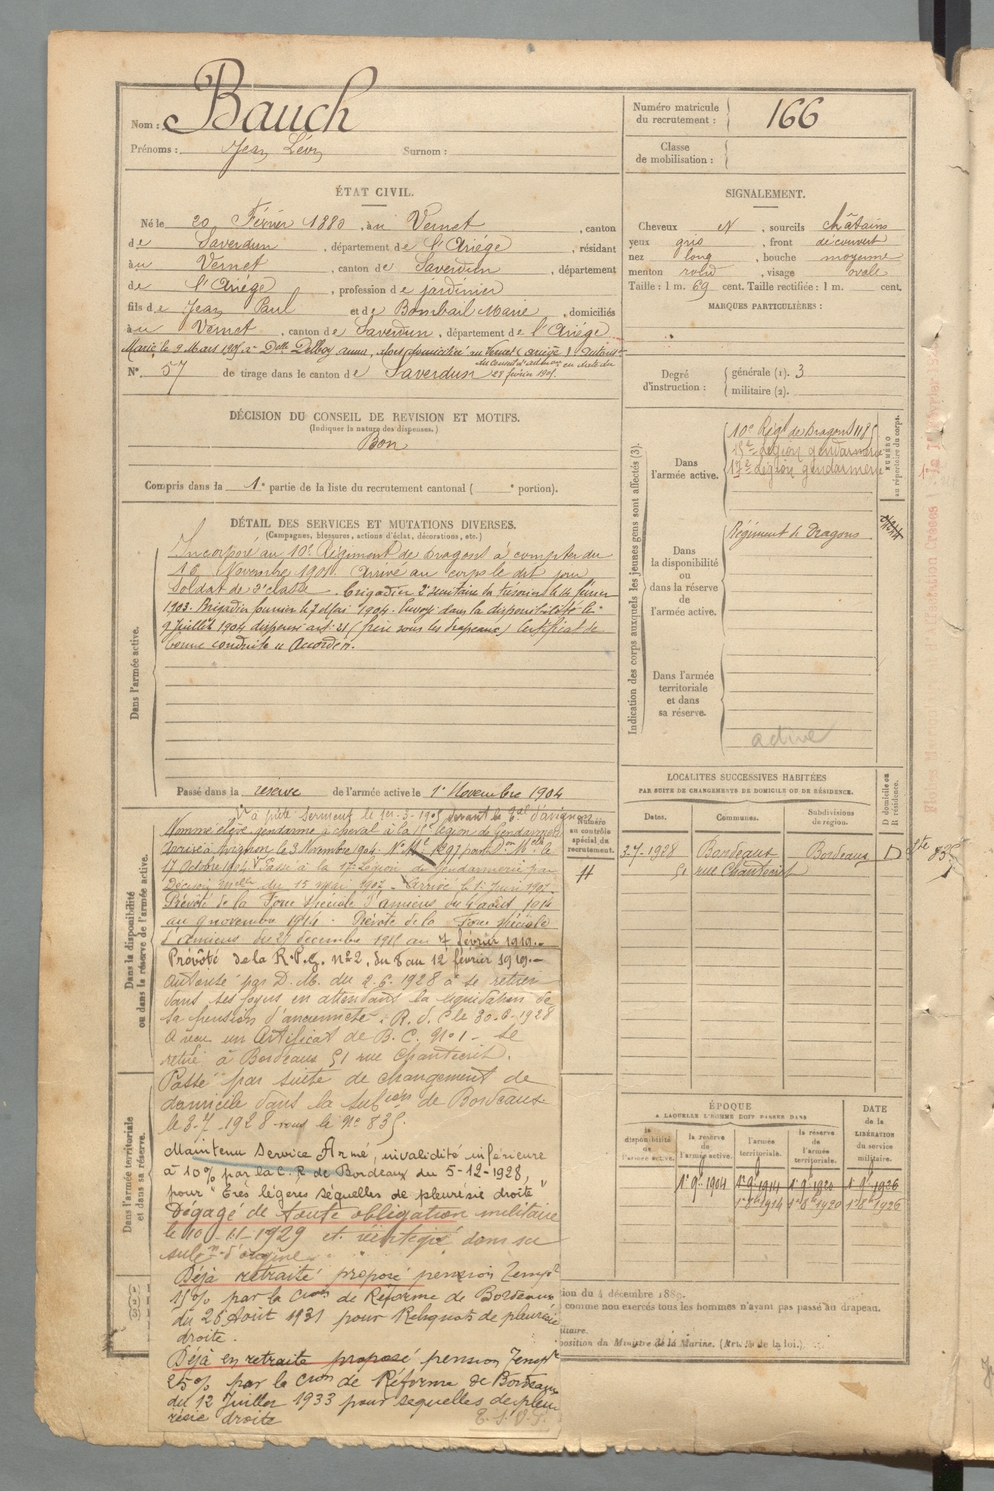 Nom : Bauch
Prénoms : Jean Léon Surnom :
Numéro matricule
du recrutement : 166
Classe
de mobilisation :
ÉTAT CIVIL.
Né le 20 Février 1880, à Vernet, canton
de Saverdun, département de l'Ariège, résidant
à Vernet, canton de Saverdun, département
de l'Ariège, profession de jardinier
fils de Jean Paul et de Bombail Marie, domiciliés
à Vernet, canton de Saverdun, département de l'Ariège
Marié le 9 Mars 1905 à Delle Delboy Anna
N° 57 de tirage dans le canton de Saverdun 28 février 1905.
SIGNALEMENT.
Cheveux N, sourcils châtains
yeux gris, front découvert
nez long, bouche moyenne
menton rond, visage ovale
Taille : 1 m. 69 cent. Taille rectifiée : 1 m. cent.
MARQUES PARTICULIÈRES :
Degré
d'instruction :
générale (1). 3
militaire (2).
DÉCISION DU CONSEIL DE REVISION ET MOTIFS.
(Indiquer la nature des dispenses.)
Bon
Compris dans la 1e partie de la liste du recrutement cantonal ( e portion).
DÉTAIL DES SERVICES ET MUTATIONS DIVERSES.
(Campagnes, blessures, actions d'éclat, décorations, etc.)
Dans l'armée active.
Incorporé au 10e Régiment de Dragons à compter du
16 Novembre 1901. Arrivé au corps le dit jour
Soldat de 2e classe. Brigadier
1903. Brigadier fourrier le 7 Mai 1904. Envoyé dans la disponibilité le
9 Juillet 1904 dispensé art. 21 (frère sous les drapeaux) Certificat de
bonne conduite "Accordé".
Passé dans la réserve de l'armée active le 1er Novembre 1904
Indication des corps auxquels les jeunes gens sont affectés (3).
Dans
l'armée active.
10e Régt de Dragons 1185
15e Légion gendarmerie
17e Légion gendarmerie
NUMÉRO
au répertoire du corps.
Dans
la disponibilité
ou
dans la réserve
de
l'armée active.
Régiment de Dragons
Dans l'armée
territoriale
et dans
sa réserve.
active
LOCALITÉS SUCCESSIVES HABITÉES
PAR SUITE DE CHANGEMENTS DE DOMICILE OU DE RÉSIDENCE.
Dates. Communes. Subdivisions
de région.
D domicile ou
R résidence.
3-7-1928 Bordeaux Bordeaux D 835
51 rue Chantecrit
Numéro
au contrôle
spécial du
recrutement.
Dans la disponibilité
ou dans la réserve de l'armée active.
Va prêté serment le 1er-3-1905 devant le
Nommé élève gendarme à cheval à la 15e légion de Gendarmerie
17 Octobre 1904. Passé à la 17e Légion de Gendarmerie par
Décision Melle du 15 mai 1907. Arrivé le 1er Juin 1907.
Prévôté de la Force spéciale d'Amiens du 4 août 1914
au 9 novembre 1914. Prévôté de la Force spéciale
d'Amiens du 27 décembre 1918 au 7 février 1919.
Prévôté de la R.P.G. n°2, du 8 au 12 février 1919.
Autorisé par D.M. du 2.6.1928 à se retirer
dans ses foyers en attendant la liquidation de
sa pension d'ancienneté. R.d.C le 30-6-1928
A reçu un certificat de B.C. N°1. Se
retire à Bordeaux 51 rue Chantecrit.
Passé par suite de changement de
domicile dans la subion de Bordeaux
le 3-7-1928 sous le N° 835.
Dans l'armée territoriale
et dans sa réserve.
Maintenu Service Armé, invalidité inférieure
à 10% par la C.R. de Bordeaux du 5-12-1928,
pour "Très légères séquelles de pleurésie droite"
Dégagé de toute obligation militaire
le 10-11-1929 et réintégré dans sa
subon d'origine
Déjà retraité proposé pension Tempre
15% par la Cion de Réforme de Bordeaux
du 26 Août 1931 pour Reliquats de pleurésie
droite.
Déjà en retraite proposé pension Tempre
25% par la Cion de Réforme de Bordeaux
du 12 Juillet 1933 pour séquelles de pleu
résie droite
ÉPOQUE
A LAQUELLE L'HOMME DOIT PASSER DANS
DATE
DE LA
LIBÉRATION
DU SERVICE
militaire.
la disponibilité
de l'armée active.
la réserve
de
l'armée active.
l'armée
territoriale.
la réserve
de l'armée
territoriale.
1er 9bre 1904 1er 9bre 1914 1er 9bre 1920 1er 9bre 1926
1er 8bre 1914 1er 8bre 1920 1er 8bre 1926
ion du 4 décembre 1889.
comme non exercés tous les hommes n'ayant pas passé au drapeau.
litaire.
position du Ministre de la Marine. (Art. de la loi.)